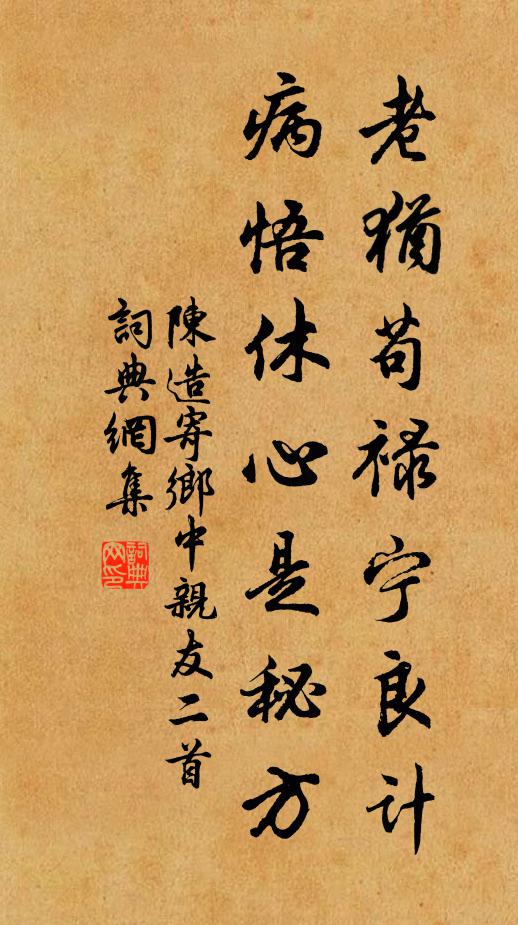 老犹苟禄宁良计
病悟休心是秘方
陳造寄鄉中親友二首
詞典網集
詞典網印